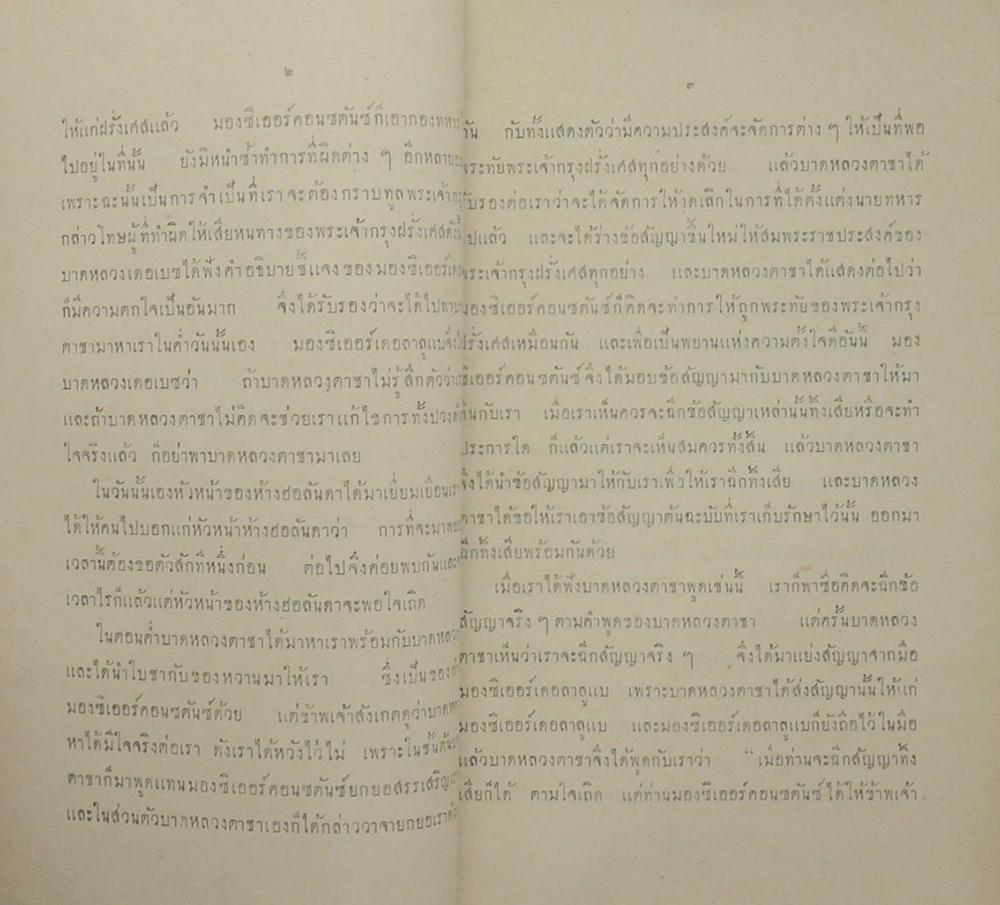 ๒
ให้แก่ฝรั่งเศสแล้ว มองซิเออร์คอนซตันซ์ก็เอากองทหาร
ไปอยู่ในที่นั้น ยังมิหนำซ้ำทำการที่ผิดต่าง ๆ อีกหลาย
เพราะฉะนั้นเป็นการจำเป็นที่เราจะต้องกราบทูลพระเจ้า
กล่าวโทษผู้ที่ทำผิดให้เสียหนทางของพระเจ้ากรุงฝรั่งเศส
บาดหลวงเดอเบซได้ฟังคำอธิบายชี้แจงของมองซิเออร์
ก็มีความตกใจเป็นอันมาก จึงได้รับรองว่าจะได้ไป
ตาชามาหาเราในค่ำวันนั้นเอง มองซิเออร์เดอลาลูแบจึง
บาดหลวงเดอเบซว่า ถ้าบาดหลวงตาชาไม่รู้สึกตัวว่า
และถ้าบาดหลวงตาชาไม่คิดจะช่วยเราแก้ไขการทั้งปวง
ใจจริงแล้ว ก็อย่าพาบาดหลวงตาชามาเลย
ในวันนั้นเองหัวหน้าของห้างฮอลันดาได้มาเยี่ยมเยือน
ได้ให้คนไปบอกแก่หัวหน้าห้างฮอลันดาว่า การที่จะมา
เวลานี้ต้องขอตัวสักทีหนึ่งก่อน ต่อไปจึงค่อยพบกัน
เวลาไรก็แล้วแต่หัวหน้าของห้างฮอลันดาจะพอใจเถิด
ในตอนค่ำบาดหลวงตาชาได้มาหาเราพร้อมกับบาดหลวง
และได้นำใบชากับของหวานมาให้เรา ซึ่งเป็นของ
มองซิเออร์คอนซตันซ์ด้วย แต่ข้าพเจ้าสังเกตดูว่า
หาได้มีใจจริงต่อเรา ดังเราได้หวังไว้ไม่ เพราะในชั้นต้น
ตาชาก็มาพูดแทนมองซิเออร์คอนซตันซ์ยกยอสรรเสริญ
และในส่วนตัวบาดหลวงตาชาเองก็ได้กล่าววาจายกยอเรา
๓
กัน กับทั้งแสดงตัวว่ามีความประสงค์จะจัดการต่าง ๆ ให้เป็นที่พอ
พระทัยพระเจ้ากรุงฝรั่งเศสทุกอย่างด้วย แล้วบาดหลวงตาชาได้
รับรองต่อเราว่าจะได้จัดการให้งดเลิกในการที่ได้ตั้งแต่งนายทหาร
ไปแล้ว และจะได้ร่างข้อสัญญาขึ้นใหม่ให้สมพระราชประสงค์ของ
พระเจ้ากรุงฝรั่งเศสทุกอย่าง และบาดหลวงตาชาได้แสดงต่อไปว่า
มองซิเออร์คอนซตันซ์ก็คิดจะทำการให้ถูกพระทัยของพระเจ้ากรุง
ฝรั่งเศสเหมือนกัน และเพื่อเป็นพยานแห่งความตั้งใจดีอันนี้ มอง
ซิเออร์คอนซตันซ์จึงได้มอบข้อสัญญามากับบาดหลวงตาชาให้มา
คืนกับเรา เมื่อเราเห็นควรจะฉีกข้อสัญญาเหล่านั้นทิ้งเสียหรือจะทำ
ประการใด ก็แล้วแต่เราจะเห็นสมควรทั้งสิ้น แล้วบาดหลวงตาชา
จึงได้นำข้อสัญญามาให้กับเราเพื่อให้เราฉีกทิ้งเสีย และบาดหลวง
ตาชาได้ขอให้เราเอาข้อสัญญาต้นฉะบับที่เราเก็บรักษาไว้นั้น ออกมา
ฉีกทิ้งเสียพร้อมกันด้วย
เมื่อเราได้ฟังบาดหลวงตาชาพูดเช่นนี้ เราก็พาซื่อคิดจะฉีกข้อ
สัญญาจริง ๆ ตามคำพูดของบาดหลวงตาชา แต่ครั้นบาดหลวง
ตาชาเห็นว่าเราจะฉีกสัญญาจริง ๆ จึงได้มาแย่งสัญญาจากมือ
มองซิเออร์เดอลาลูแบ เพราะบาดหลวงตาชาได้ส่งสัญญานั้นให้แก่
มองซิเออร์เดอลาลูแบ และมองซิเออร์เดอลาลูแบก็ยังถือไว้ในมือ
แล้วบาดหลวงตาชาจึงได้พูดกับเราว่า "เมื่อท่านจะฉีกสัญญาทิ้ง
เสียก็ได้ ตามใจเถิด แต่ท่านมองซิเออร์คอนซตันซ์ได้ให้ข้าพเจ้า